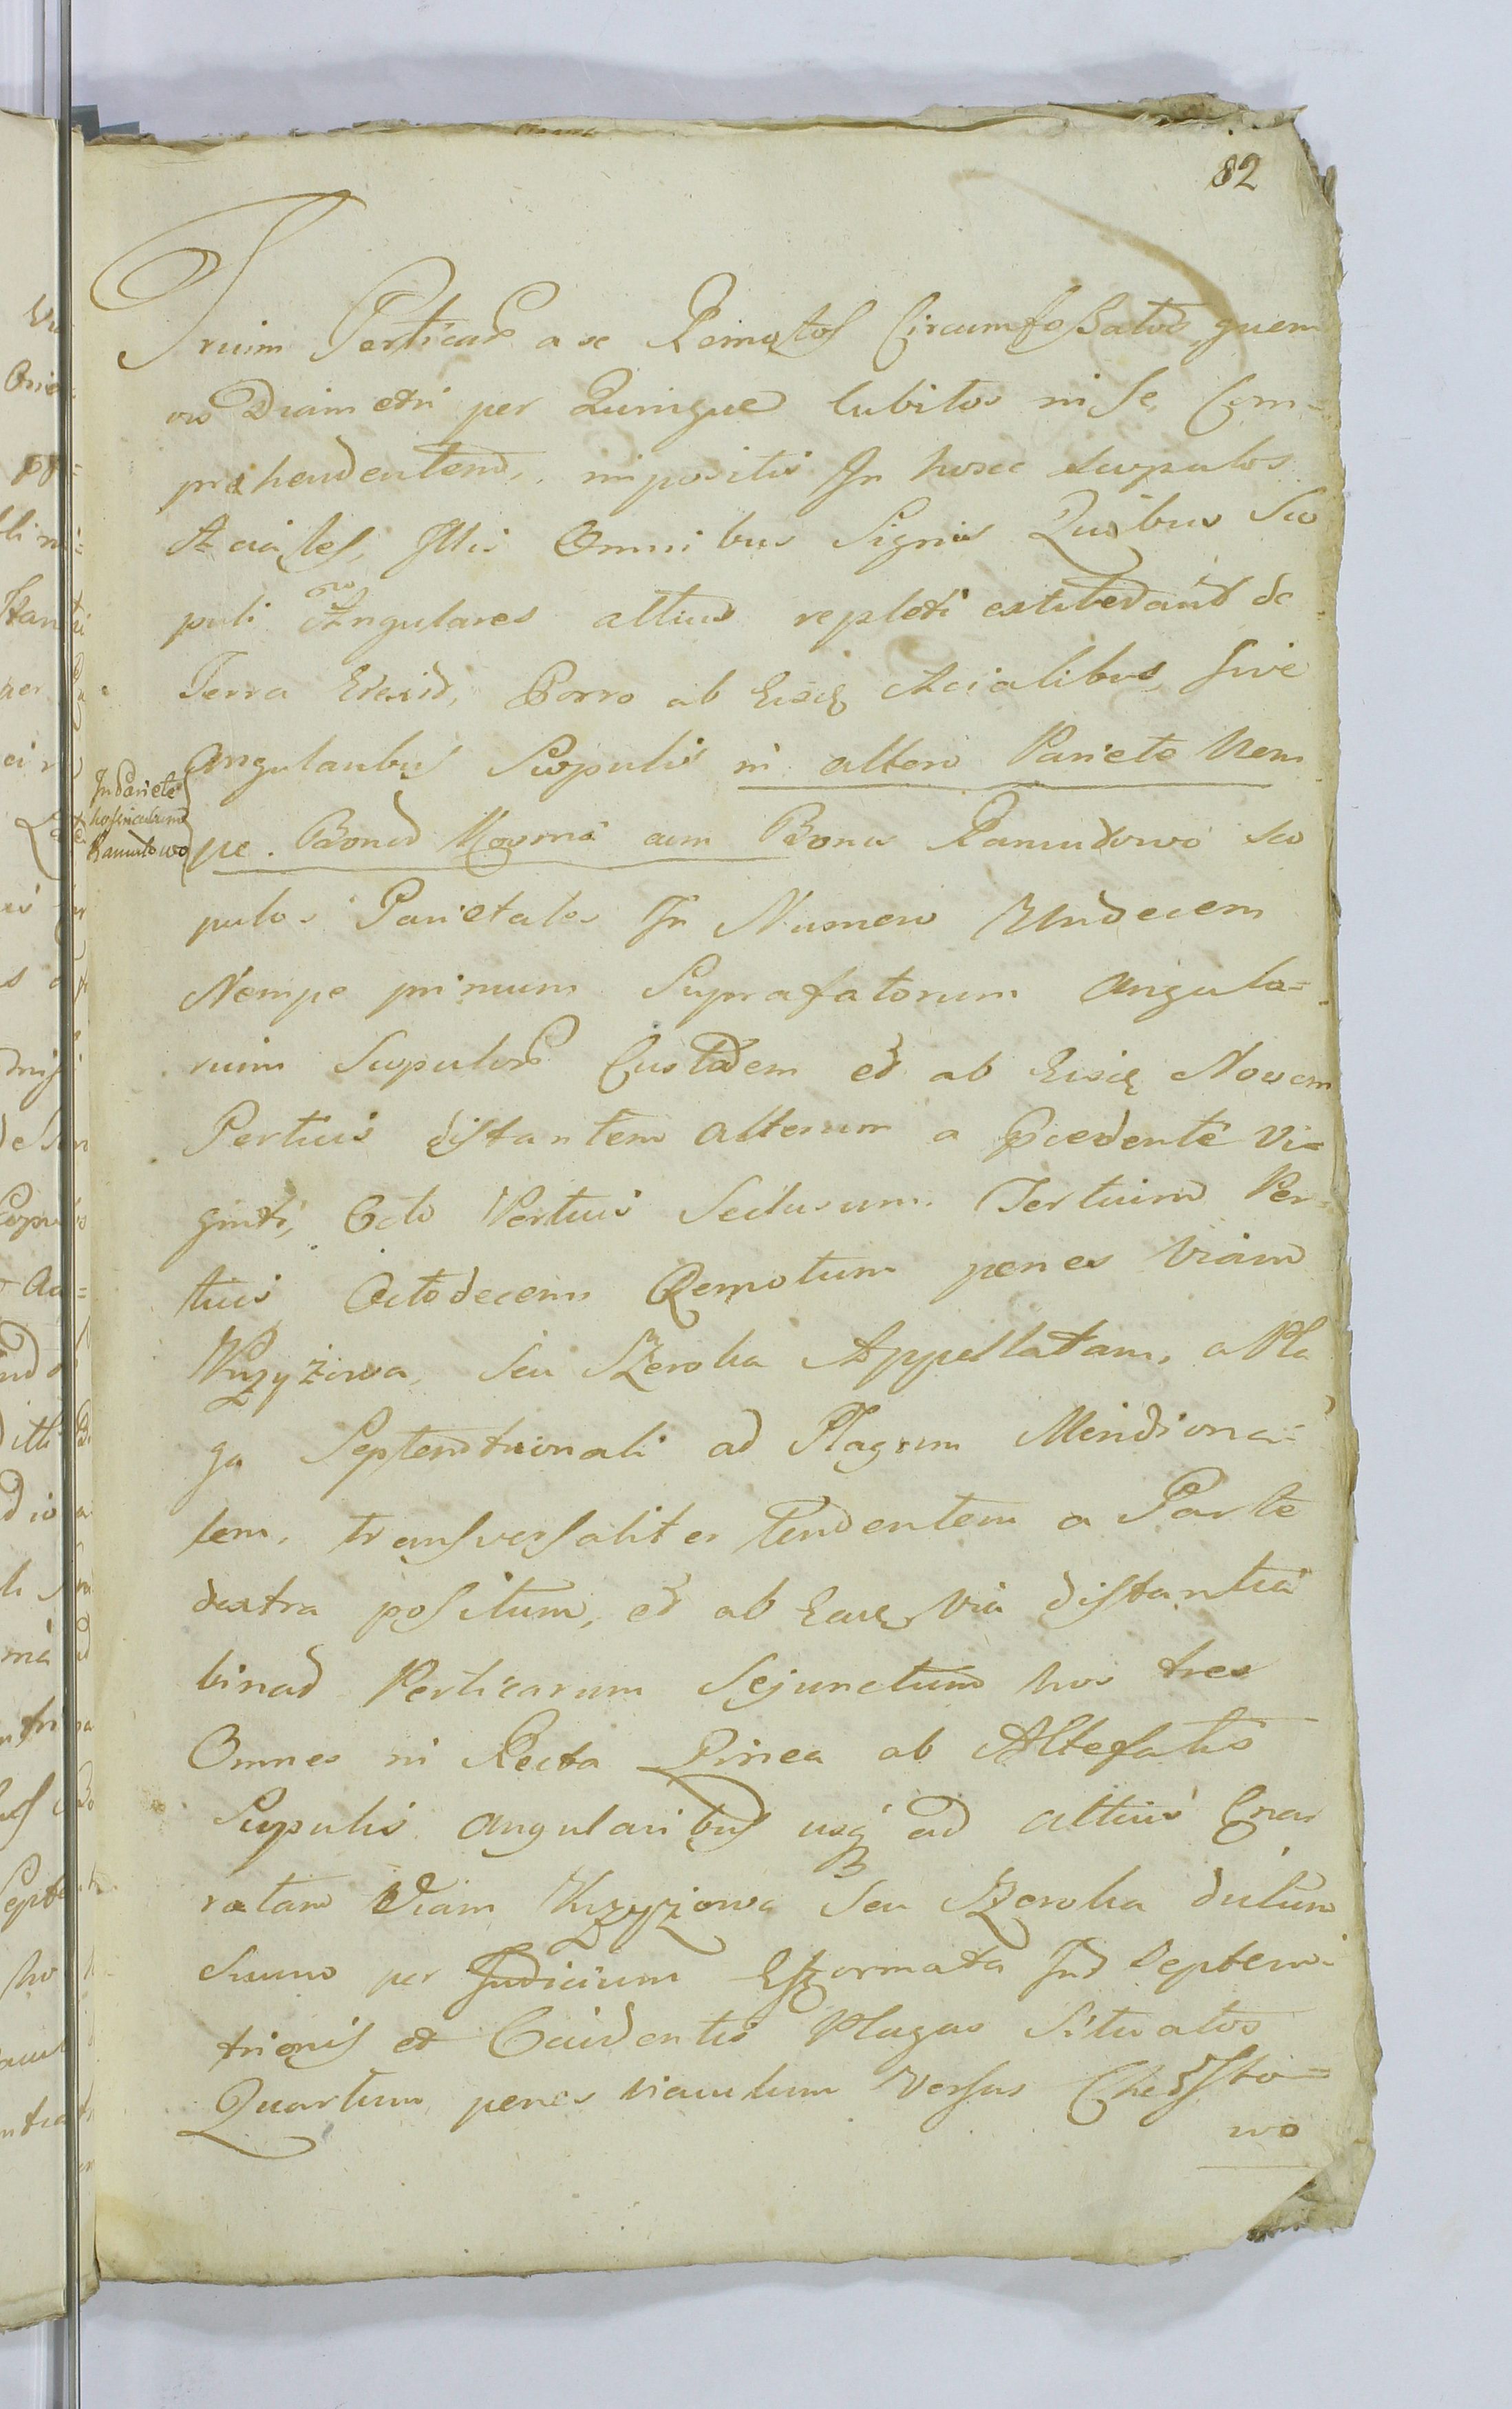 82
Trium Perticar a se Remotos Circumfossatos, quem
vis Diametri per Quinque Cubitos in se Com=
præhendentem, impositis In hosce Scopulos
Aciales, Illis Omnibus Signis Quibus Sco
puli Angulares altius repleti extiterant de
Terra Erexit, Porro ab Eisdē Acialibus, sive
Angularibus Scopulis in altero Pariete Nem
In Pariete
Ramutowo
pe. Bonor cum Bonis Ramutowo Sco
pulos Parietales In Numero Undecem
Nempe primum Suprafatorum Angula=
rium Scopulor Custodem et ab Eisdē Novem
Perticis distantem alterum a Præcedente Vi=
ginti, Octo Perticis Seclusum. Tertium Per=
ticis Octodecem Remotum penes Viam
Krzyżowa, seu Szeroka Appellatam, a Pla
ga Septemtrionali ad Plagam Meridiona=
lem, transversaliter tendentem a Parte
dextra positum, et ab Eadē Via distantia
binar Perticarum Sejunctum hos tres
Omnes in Recta Linea ab Altefatis
Scopulis Angularibus usq ad altius Enar
ratam Viam Krzyżowa Seu Szeroka dictam
Suum per Judicium Efformata Int Septem=
trionis et Occidentis Plagas Situatos
Quartum penes viaculum Versus
wo